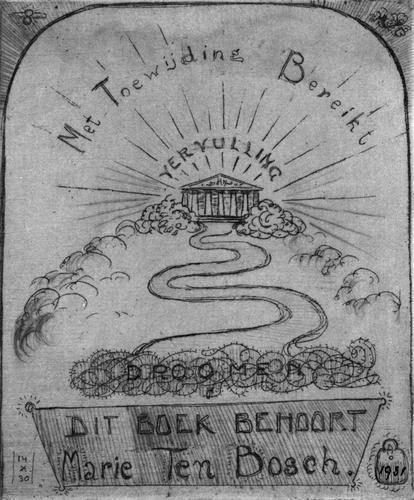 Met Toewijding Bereikt
VERVULLING
DROOMEN
DIT BOEK BEHOORT
Marie Ten Bosch.
14
X
30
1931